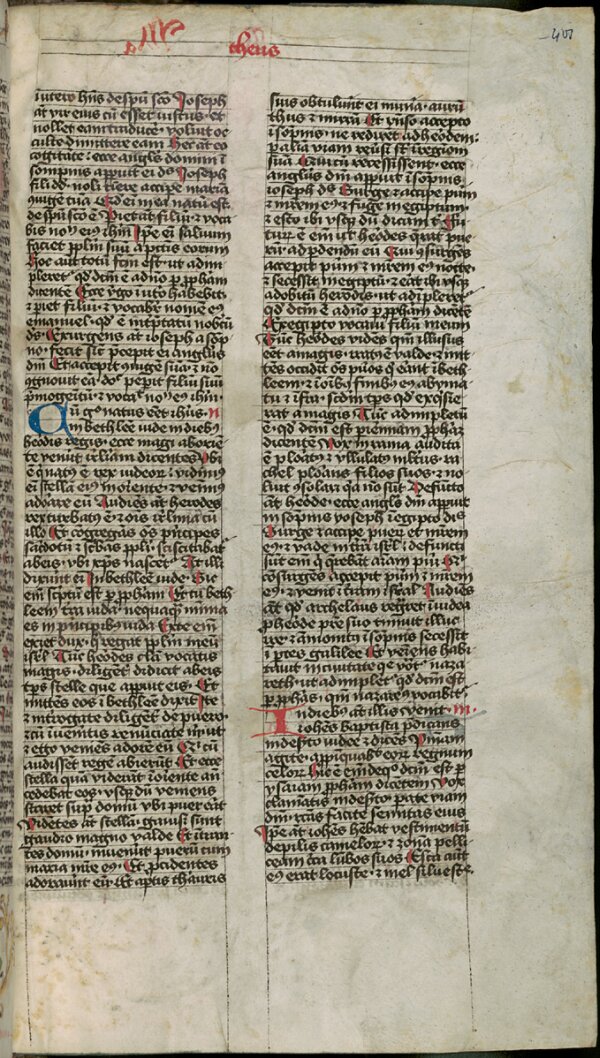 theus
in utero hns de spu sco Joseph
at vir eius cu esset iustus et
nollet eam traduce voluit oc
culte dimittere eam Hec at eo
cogitate ecce angls domini i
sompnis apparuit ei ds Joseph
fili dd noli timere accipe maria
iugē tuā Qd ei in ea natū est
de spu sco ē Pariet at filiū et voca
bis nom eius ihm Ipse ei saluum
faciet pplm suū a pctis eorum
Hoc aut totū fcm est ut adim
pleret qd dcm ē a dno p ppham
dicentē Ecce virgo i utero habebit
et pariet filiū et vocabit nomē eius
emanuel qd ē interptatū nobcū
ds Exurgens at ioseph a sop
no fecit sicut pcepit ei anglus
dni Et accepit iugē suā et no
cognouit eā donec peperit filiū suū
primogeitū et vocauit nom eius ihm
Cū g natus eēt ihus
in bethlee iude in diebus
herodis regis ecce magi ab orie
te venerūt irlimā dicentes Vbi
ē qui natus ē rex iudeor vidimus
ei stellā eius in oriente et venimus
adorare eū Audiēs at herodes
rex turbatus ē et ois irlima cū
illo Et cōgregās os pncipes
sacdotū et scribas ppli sciscitabat
ab eis vbi xps nascet At illi
dixerūt ei In bethlee iude Sic
em scptū est p ppham Et tu beth
leem tra iuda nequaq mima
es in pncipibus iuda Ex te em
exiet dux q regat pplm meū
isrl Tūc herodes clā vocatis
magis diligēt didicit ab eis
tps stelle que apparuit eis Et
mittēs eos i bethlee dixit Ite
et introgate diligēt de puero
et cū inuenitis renūciate m ut
et ego veniēs adorē eū Qui cū
audisset regē abierūt Et ecce
stella quā viderāt i oriente an
tecedebat eos vsq dū veniens
staret supra domū vbi puer erat
Videtes at stellā gauisi sunt
gaudio magno valde Et intran
tes domū inuenerūt puerū cum
maria mre eius Et pcidentes
adorauerūt eū Et aptis thauris
suis obtulerunt ei mūna aurū
thus et mirrā Et rnso accepto
i sopnis ne redirēt ad herodem
p alia viam reuersi st i regiom
suā Qui cū recessissent ecce
anglus dni apparuit i sopnis
ioseph ds Surge et accipe puerū
et mrem eius et fuge i egiptum
et esto ibi vsq dū dicam t Fu
turū ē em ut herodes querat pue
rū ad pdendū eū Qui surgēs
accepit puerū et mrem eius nocte
et secessit i egiptū et erat ibi vsq
ad obitū herodis ut adipleret
qd dcm ē a dno p ppham dicētē
Ex egipto vocaui filiū meum
Tūc herodes vidēs qm illusus
eēt a magis iratus ē valde et mit
tēs occidit os pueros qui erāt i beth
leem et i oibus finibus eius a bima
tu et ifra scdm tps qd exqsie
rat a magis Tūc adimpletū
ē qd dcm est p ieremiam ppham
dicentē Vox in rama audita
ē ploratus et vllulatus multus ra
chel plorans filios suos et no
luit cōsolari qa no sūt Defūcto
at herode ecce angls dni apparuit
in sopnis ioseph i egipto ds
Surge et accipe puerū et mrem
eius et vade in trā isrl defuncti
sūt em q querebāt aiam pueri Qui
cōsurgēs accepit puerū et mrem
eius et venit i trām israel Audiēs
at qd archelaus regnaret i iudea
p herode pre suo timuit illuc
ire et amonitus i sopnis secessit
i ptes galilee Et veniens habi
tauit in ciuitate que vocat naza
reth ut adimpleret qd dcm est
p pphas qm nazareus vocabit
In diebus at illis venit
iohēs baptista pdicans
in deserto iudee et dices Pniam
agite appiquabit em regnum
celor Hic ē em de quo dcm est p
ysaiam ppham dicetem Vox
clamatis in deserto parate viam
dni rectas facite semitas eius
Ipse at iohēs hebat vestimentū
de pilis camelor et zona pelli
ceam circa lūbos suos Esca aut
eius erat locuste et mel siluestre